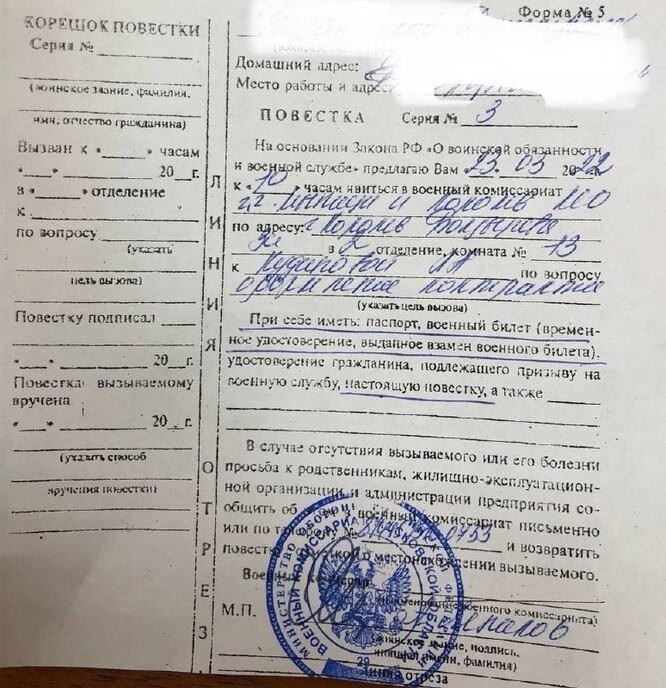 КОРЕШОК ПОВЕСТКИ
Серия №
(воинское звание, фамилия,
имя, отчество гражданина)
Вызван к «___» часам
«___» ______ 20__г.
в «___» отделение
к
по вопросу
(указать
цель вызова)
Повестку подписал
«___» ______ 20__г.
Повестка вызываемому
вручена
«___» ______ 20__г.
(указать способ
вручения повестки)
ЛИНИЯ ОТРЕЗ
Форма № 5
Домашний адрес:
Место работы и адрес
ПОВЕСТКА Серия № 3
На основании Закона РФ «О воинской обязанности
и военной службе» предлагаю Вам «23.03 2022
к «10» часам явиться в военный комиссариат
г.г. Мытищи и Королев МО
по адресу: г. Королев Болдырева
в 2 отделение, комната № 13
к по вопросу
оформление контракта
(указать цель вызова)
При себе иметь: паспорт, военный билет (времен-
ное удостоверение, выданное взамен военного билета),
удостоверение гражданина, подлежащего призыву на
военную службу, настоящую повестку, а также
В случае отсутствия вызываемого или его болезни
просьба к родственникам, жилищно-эксплуатацион-
ной организации и администрации предприятия со-
общить об военный комиссариат письменно
или по и возвратить
повестку о местонахождении вызываемого.
Военный комиссар
(наименование военного комиссариата)
М.П.
(воинское звание, подпись,
инициал имени, фамилия)
Линия отреза